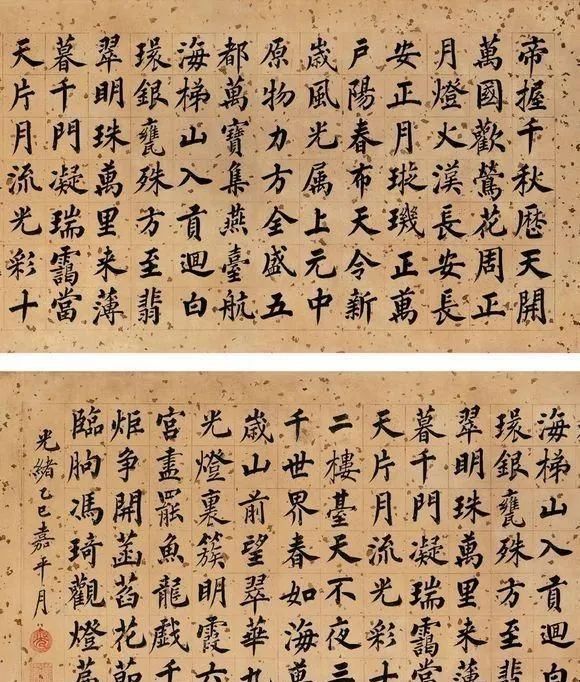 帝握千秋歷天開
萬國歡鶯花周正
月燈火漢長安長
安正月璇璣正萬
戶陽春布天令新
歳風光属上元中
原物力方全盛五
都萬寶集燕臺航
海梯山入貢迴白
環銀甕殊方至翡
翠明珠萬里来薄
暮千門凝瑞靄當
天片月流光彩十
海梯山入貢迴白
環銀甕殊方至翡
翠明珠萬里来薄
暮千門凝瑞靄當
天片月流光彩十
二樓臺天不夜三
千世界春如海萬
歳山前望翠華九
光燈裏簇明霞六
宮盡罷魚龍戲千
炬争開菡萏花節
臨朐馮琦觀燈篇
光緒乙巳嘉平月